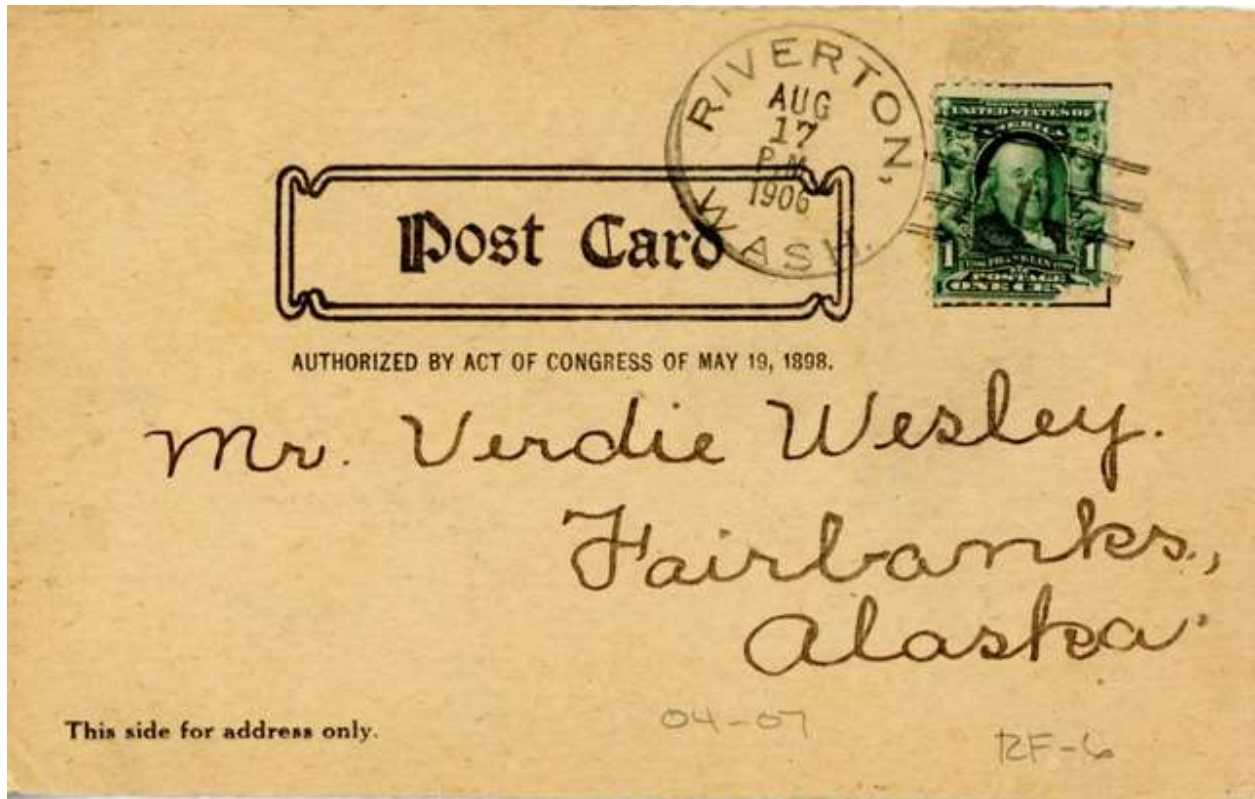 RIVERTON, WASH.
AUG
17
P.M.
1906
UNITED STATES OF
AMERICA
1 FRANKLIN 1
POSTAGE
ONE CEN
Post Card
AUTHORIZED BY ACT OF CONGRESS OF MAY 19, 1898.
Mr. Verdie Wesley.
Fairbanks,
Alaska
This side for address only.
04-07
RF-6